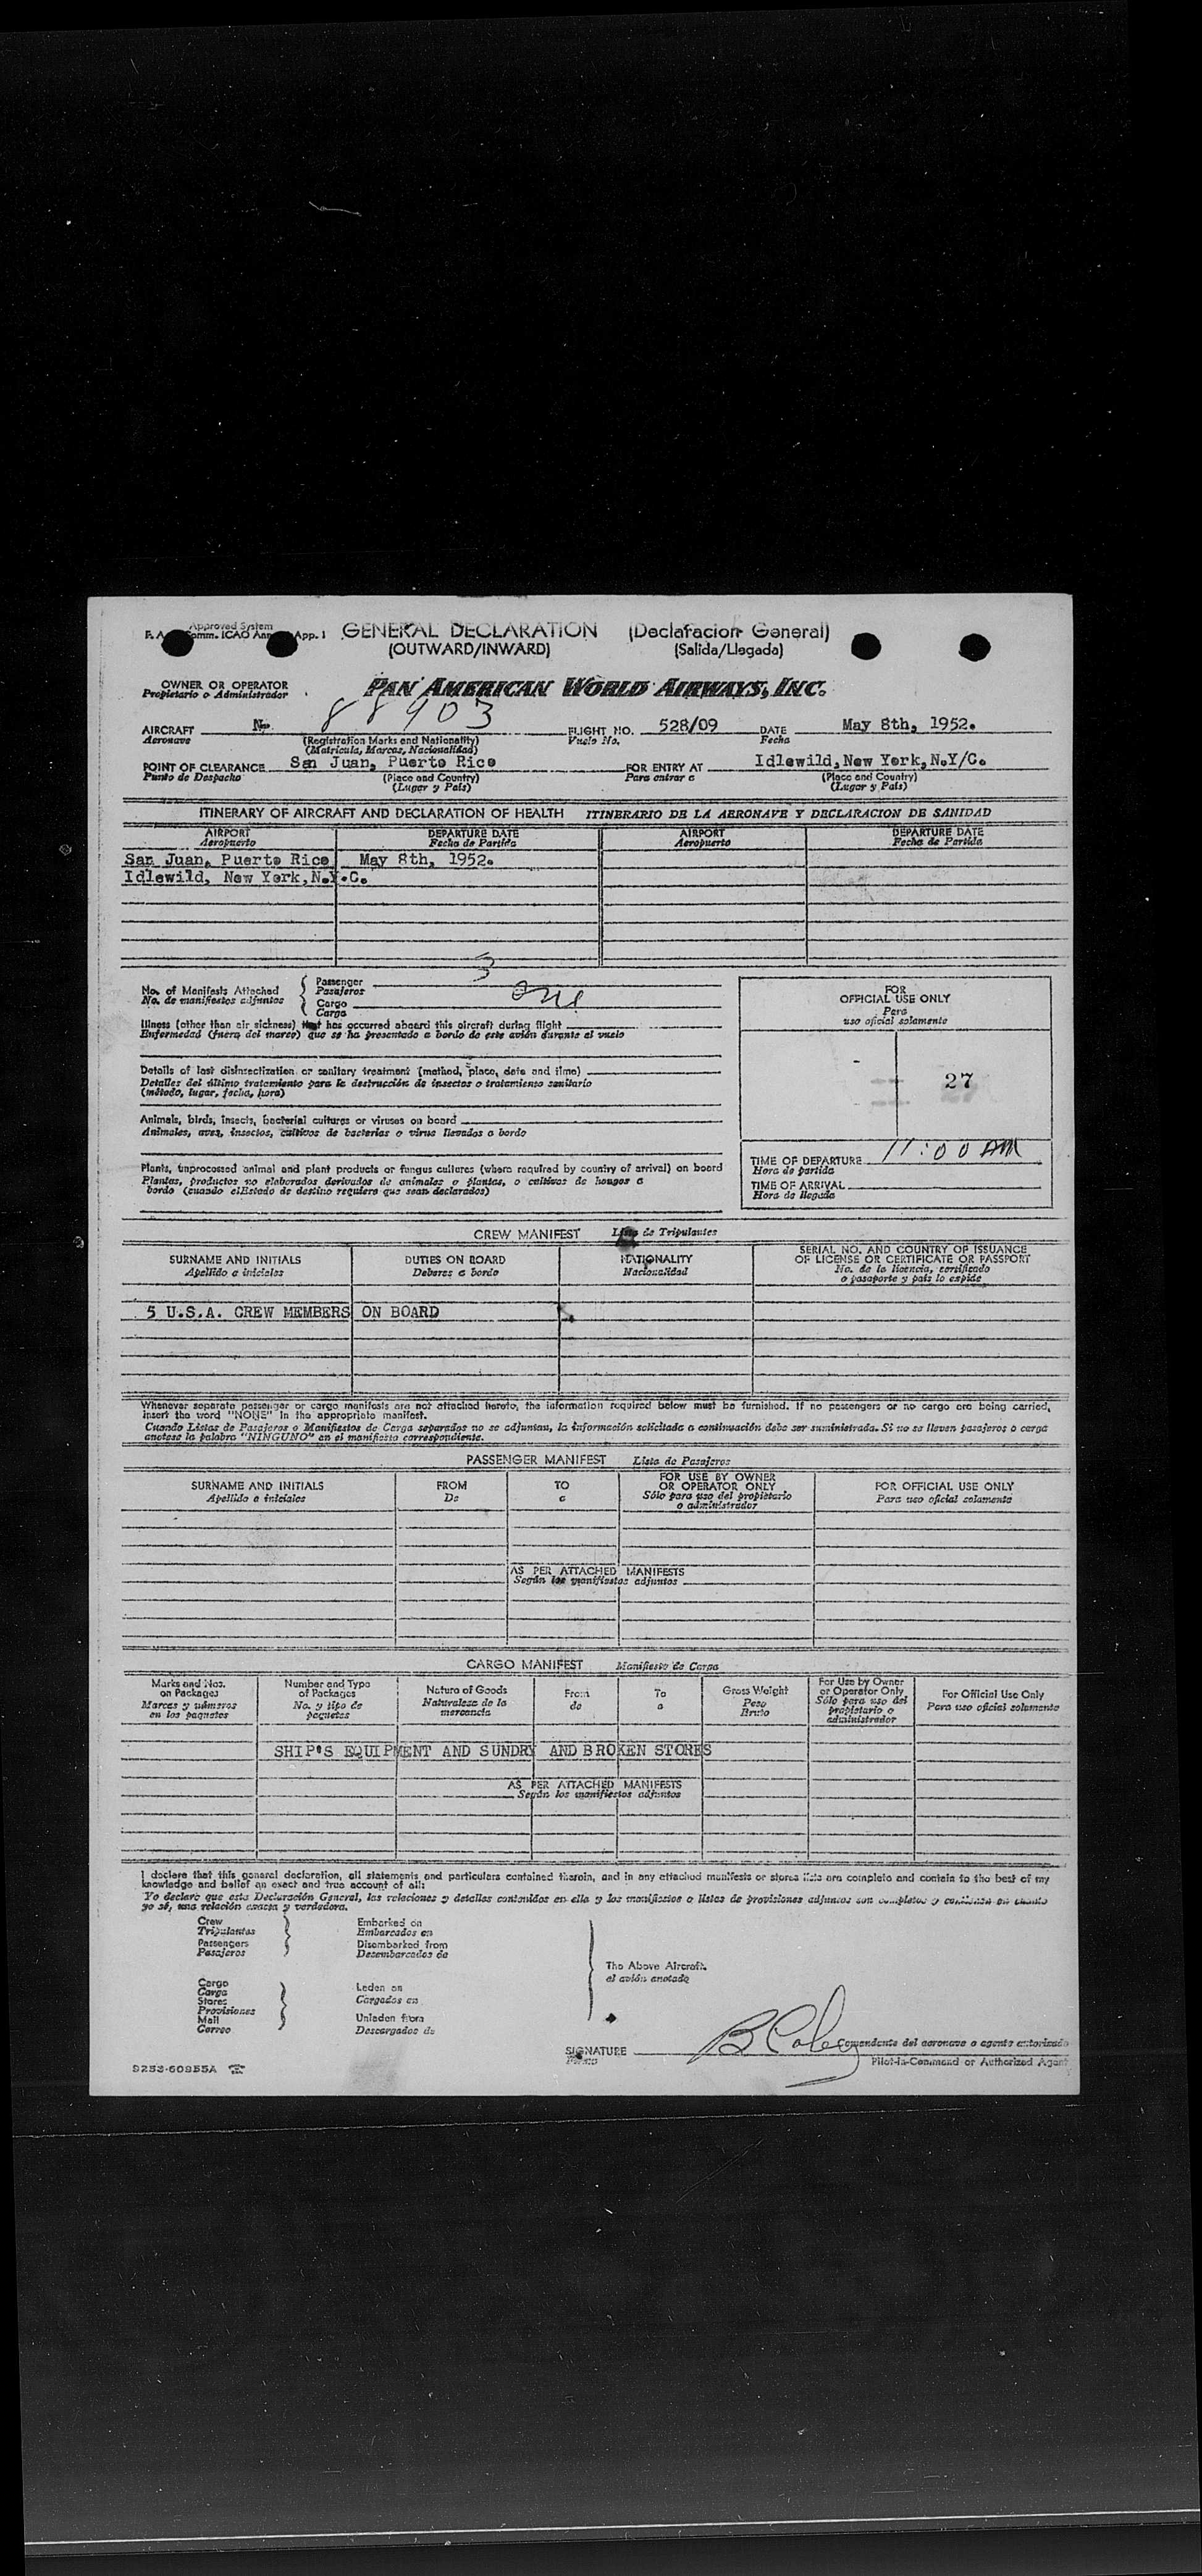 Approved System
GENERAL DECLARATION (Declaracion General)
(OUTWARD/INWARD) (Salida/Llegada)
OWNER OR OPERATOR
Propietario o Administrador
PAN AMERICAN WORLD AIRWAYS, INC.
AIRCRAFT N. 88903 FLIGHT NO. 528/09 DATE May 8th, 1952.
Aeronave (Registration Marks and Nationality) Vuelo No. Fecha
(Matricula, Marcas, Nacionalidad)
POINT OF CLEARANCE San Juan, Puerto Rico FOR ENTRY AT Idlewild, New York, N.Y/C.
Punto de Despacho (Place and Country) Para entrar a (Place and Country)
(Lugar y País) (Lugar y País)
ITINERARY OF AIRCRAFT AND DECLARATION OF HEALTH ITINERARIO DE LA AERONAVE Y DECLARACION DE SANIDAD
AIRPORT DEPARTURE DATE AIRPORT DEPARTURE DATE
Aeropuerto Fecha de Partida Aeropuerto Fecha de Partida
San Juan, Puerto Rico May 8th, 1952.
Idlewild, New York, N.Y.C.
No. of Manifests Attached
No. de manifiestos adjuntos
Passenger 3
Pasajeros
Cargo one
Carga
Illness (other than air sickness) that has occurred aboard this aircraft during flight
Enfermedad (fuera del mareo) que se ha presentado a bordo de este avión durante el vuelo
Details of last disinsectization or sanitary treatment (method, place, date and time)
Detalles del último tratamiento para la destrucción de insectos o tratamiento sanitario
(método, lugar, fecha, hora)
Animals, birds, insects, bacterial cultures or viruses on board
Animales, aves, insectos, cultivos de bacterias o virus llevados a bordo
Plants, unprocessed animal and plant products or fungus cultures (where required by country of arrival) on board
Plantas, productos no elaborados derivados de animales o plantas, o cultivos de hongos a
bordo (cuando el Estado de destino requiera que sean declarados)
FOR
OFFICIAL USE ONLY
Para
uso oficial solamente
27
TIME OF DEPARTURE 11:00 AM
Hora de partida
TIME OF ARRIVAL
Hora de llegada
CREW MANIFEST Lista de Tripulantes
SURNAME AND INITIALS DUTIES ON BOARD NATIONALITY SERIAL NO. AND COUNTRY OF ISSUANCE
OF LICENSE OR CERTIFICATE OR PASSPORT
Apellido e iniciales Deberes a bordo Nacionalidad No. de la licencia, certificado
o pasaporte y país lo expide
5 U.S.A. CREW MEMBERS ON BOARD
Whenever separate passenger or cargo manifests are not attached hereto, the information required below must be furnished. If no passengers or no cargo are being carried,
insert the word "NONE" in the appropriate manifest.
Cuando Listas de Pasajeros o Manifiestos de Carga separados no se adjuntan, la información solicitada a continuación debe ser suministrada. Si no se llevan pasajeros o carga
anotese la palabra "NINGUNO" en el manifiesto correspondiente.
PASSENGER MANIFEST Lista de Pasajeros
SURNAME AND INITIALS FROM TO FOR USE BY OWNER OR OPERATOR ONLY FOR OFFICIAL USE ONLY
Apellido e iniciales De a Sólo para uso del propietario o administrador Para uso oficial solamente
AS PER ATTACHED MANIFESTS
Según los manifiestos adjuntos
CARGO MANIFEST Manifiesto de Carga
Marks and Nos. on Packages Number and Type of Packages Nature of Goods From To Gross Weight For Use by Owner or Operator Only For Official Use Only
Marcas y números en los paquetes No. y tipo de paquetes Naturaleza de la mercancía de a Peso Bruto Sólo para uso del propietario o administrador Para uso oficial solamente
SHIP'S EQUIPMENT AND SUNDRY AND BROKEN STORES
AS PER ATTACHED MANIFESTS
Según los manifiestos adjuntos
I declare that this general declaration, all statements and particulars contained therein, and in any attached manifests or stores lists are complete and contain to the best of my
knowledge and belief an exact and true account of all:
Yo declaro que esta Declaración General, las relaciones y detalles contenidos en ella y los manifiestos o listas de provisiones adjuntos son completos y contienen en cuanto
yo sé, una relación exacta y verdadera.
Crew Embarked on
Tripulantes Embarcados en
Passengers Disembarked from
Pasajeros Desembarcados de
The Above Aircraft.
el avión anotado
Cargo
Carga Laden on
Stores Cargados en
Provisiones
Mail Unladen from
Correo Descargados de
SIGNATURE
Firma
Comandante del aeronave o agente autorizado
Pilot-in-Command or Authorized Agent
9253-60855A